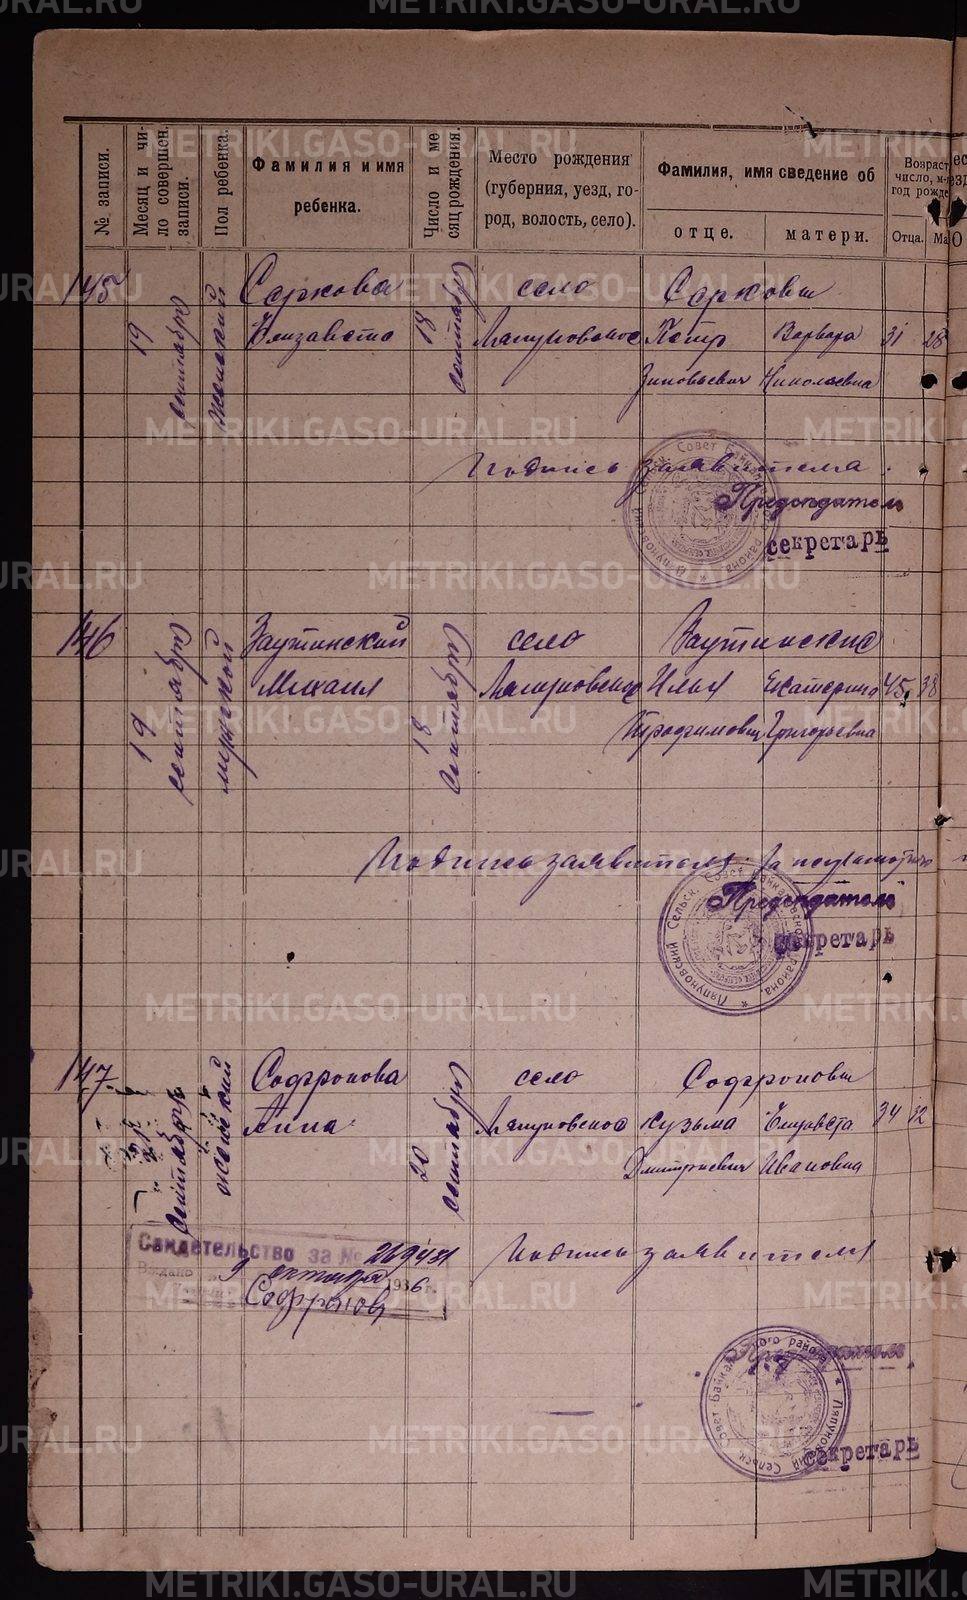 METRIKI.GASO-URAL.RU
№ записи.
Месяц и чи-
ло совершен.
записи.
Пол ребенка.
Фамилия и имя
ребенка.
Число и ме
сяц рождения.
Место рождения
(губерния, уезд, го-
род, волость, село).
Фамилия, имя сведение об
отце.
матери.
Возраст
число, м-
год рожде
Отца.
Ма
145
19
сентября
женский
Серкова
Елизавета
18
сентября
село
Ляпуновское
Серковы
Петр
Зиновьевич
Варвара
Николаевна
31
28
Подпись заявителя.
Председатель
секретарь
146
19
сентября
мужской
Заутинский
Михаил
18
сентября
село
Ляпуновское
Заутинские
Илья
Трофимович
Екатерина
Григорьевна
45
38
Подпись заявителя. За неграмотн
Председатель
секретарь
Ляпуновский Сельск. Совет Байкаловского района.
147
сентября
женский
Софронова
Анна
20
сентября
село
Ляпуновское
Софроновы
Кузьма
Дмитриевич
Елизавета
Ивановна
34
32
Свидетельство за №
Выдано 9 октября 1936 г.
Софронов
Подпись заявителя
Председатель
секретарь